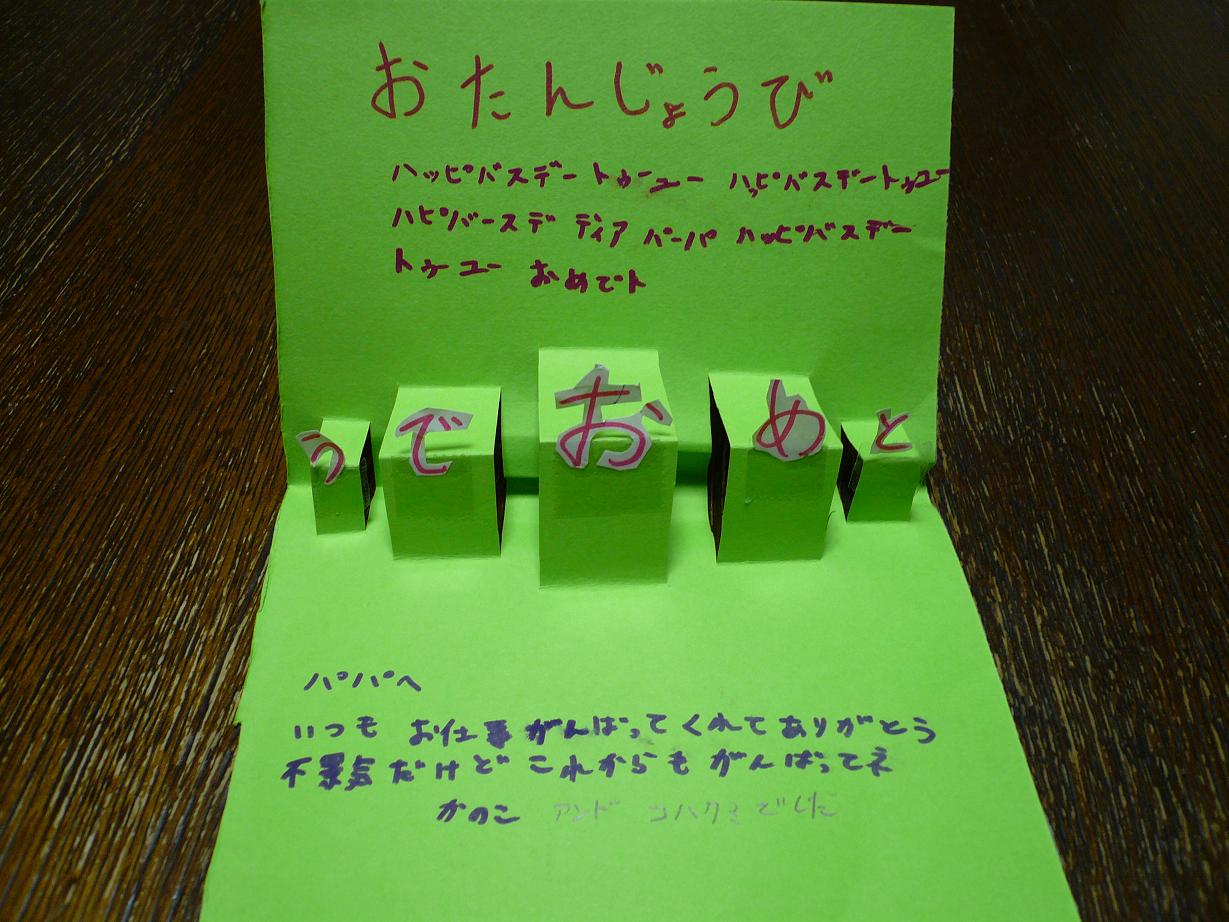 おたんじょうび
ハッピバスデートゥーユー ハッピバスデートゥユー
ハピバースデ ディア パーパ ハッピバスデー
トゥーユー おめでト
う で お め と
パパへ
いつも お仕事がんばってくれてありがとう
不景気だけど これからもがんばってネ
かのこ アンド コハクミでした